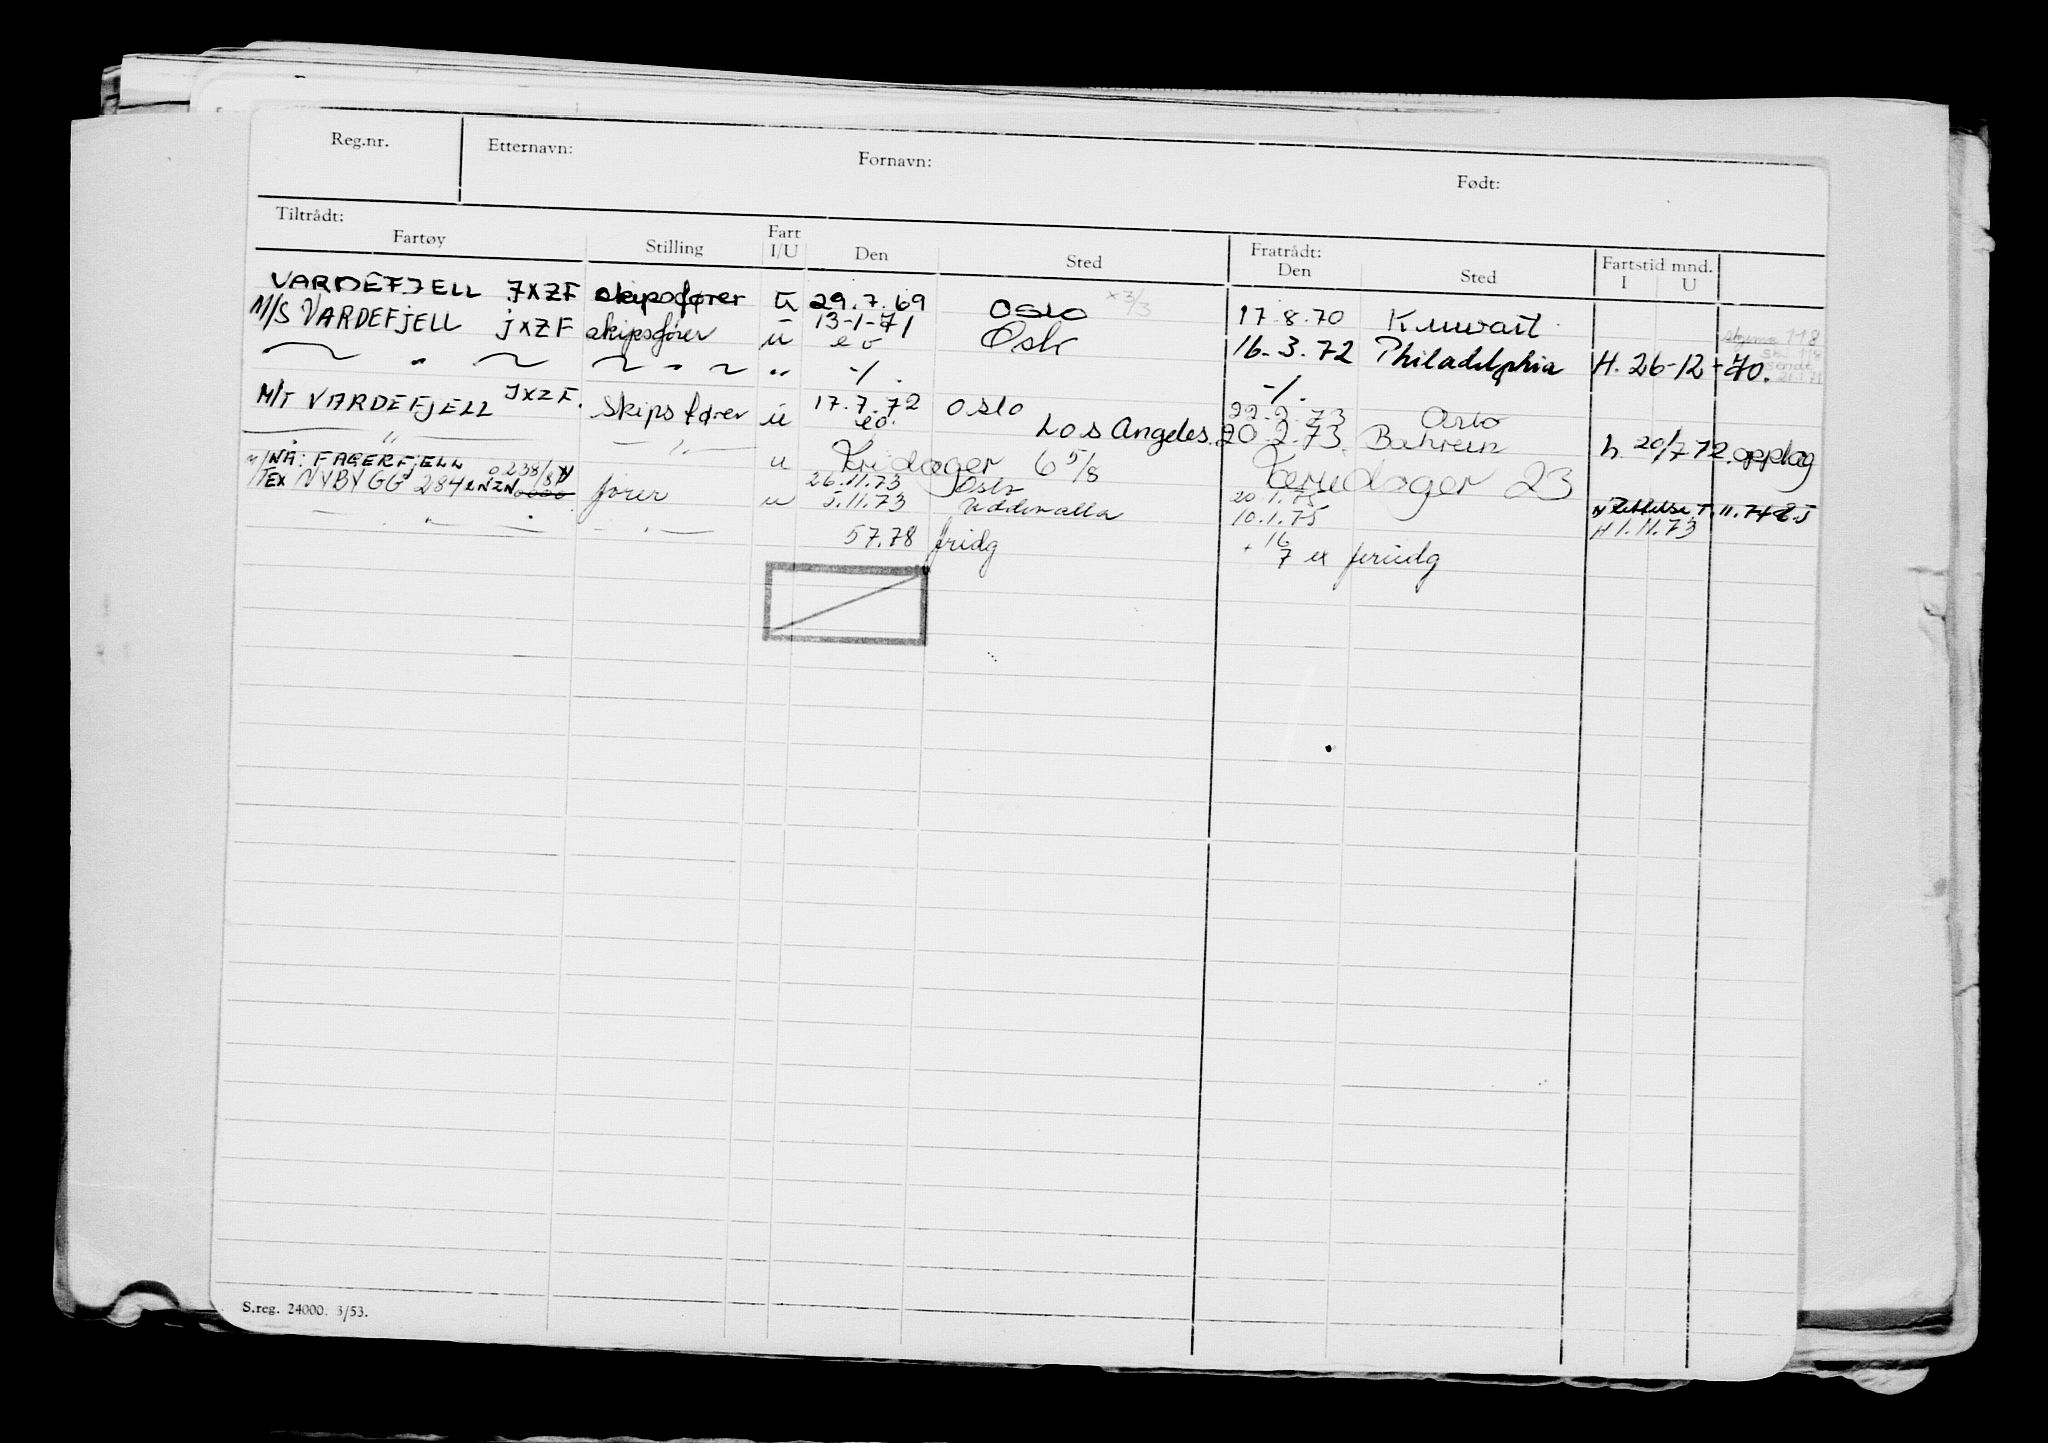 Reg.nr. Etternavn: Fornavn: Født:
Tiltrådt: Fratrådt:
Fartøy Stilling Fart I/U Den Sted Den Sted Fartstid mnd. I U
VARDEFJELL JXZF skipsfører U 29.7.69 OSLO x3/3 17.8.70 Kuwait
M/S VARDEFJELL JXZF skipsfører u 13-1-71 Oslo 16.3.72 Philadelphia H. 26-12-70.
" " " -/. -/.
M/T VARDEFJELL JXZF. skipsfører u 17.7.72 OSLO 22.2.73 Oslo
" " eo. Los Angeles. 20.2.73. Bahrein h. 20/7 72. opplag
u Fridager 6 5/8 Feriedager 23
NÅ: FAGERFJELL
M/T EX NYBYGG 284 LNZN fører u 26.11.73 Oslo 20.1.75
" " 5.11.73 Uddevalla 10.1.75 H 1.11.73
57.78 fridg + 16
7 ex feriedg
S.reg. 24000. 3/53.